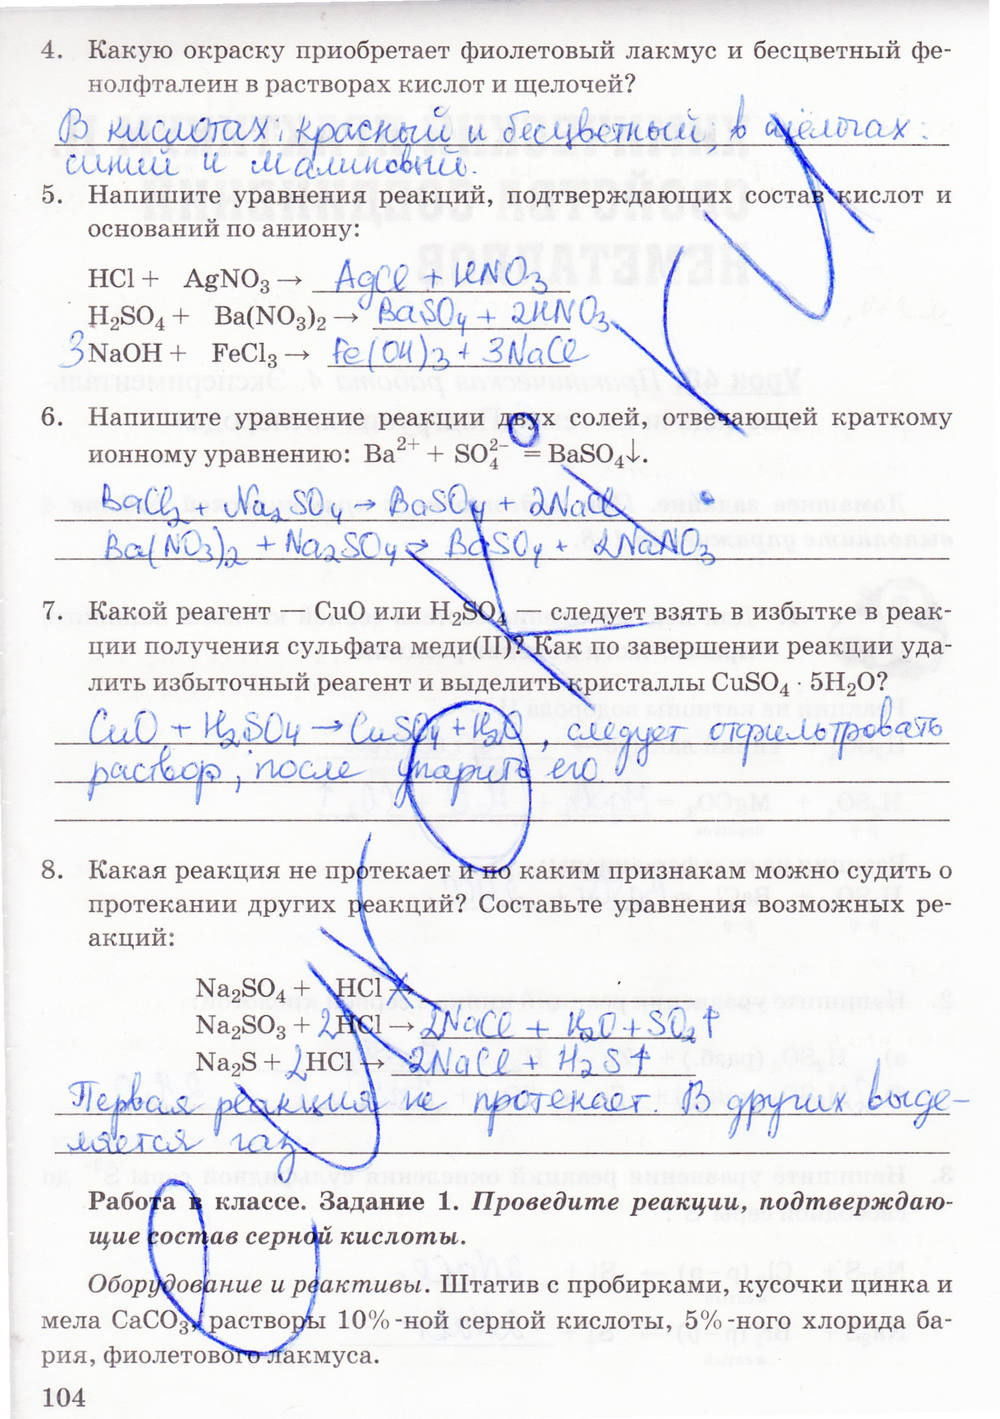 4. Какую окраску приобретает фиолетовый лакмус и бесцветный фе-
нолфталеин в растворах кислот и щелочей?
В кислотах: красный и бесцветный, в щёлочах:
синий и малиновый.
5. Напишите уравнения реакций, подтверждающих состав кислот и
оснований по аниону:
HCl + AgNO₃ → AgCl + HNO₃
H₂SO₄ + Ba(NO₃)₂ → BaSO₄ + 2HNO₃
3NaOH + FeCl₃ → Fe(OH)₃ + 3NaCl
6. Напишите уравнение реакции двух солей, отвечающей краткому
ионному уравнению: Ba²⁺ + SO₄²⁻ = BaSO₄↓.
BaCl₂ + Na₂SO₄ → BaSO₄ + 2NaCl
Ba(NO₃)₂ + Na₂SO₄ → BaSO₄ + 2NaNO₃
7. Какой реагент — CuO или H₂SO₄ — следует взять в избытке в реак-
ции получения сульфата меди(II)? Как по завершении реакции уда-
лить избыточный реагент и выделить кристаллы CuSO₄ · 5H₂O?
CuO + H₂SO₄ → CuSO₄ + H₂O, следует отфильтровать
раствор, после упарить его
8. Какая реакция не протекает и по каким признакам можно судить о
протекании других реакций? Составьте уравнения возможных ре-
акций:
Na₂SO₄ + HCl →
Na₂SO₃ + 2HCl → 2NaCl + H₂O + SO₂↑
Na₂S + 2HCl → 2NaCl + H₂S↑
Первая реакция не протекает. В других выде-
ляется газ
Работа в классе. Задание 1. Проведите реакции, подтверждаю-
щие состав серной кислоты.
Оборудование и реактивы. Штатив с пробирками, кусочки цинка и
мела CaCO₃, растворы 10%-ной серной кислоты, 5%-ного хлорида ба-
рия, фиолетового лакмуса.
104